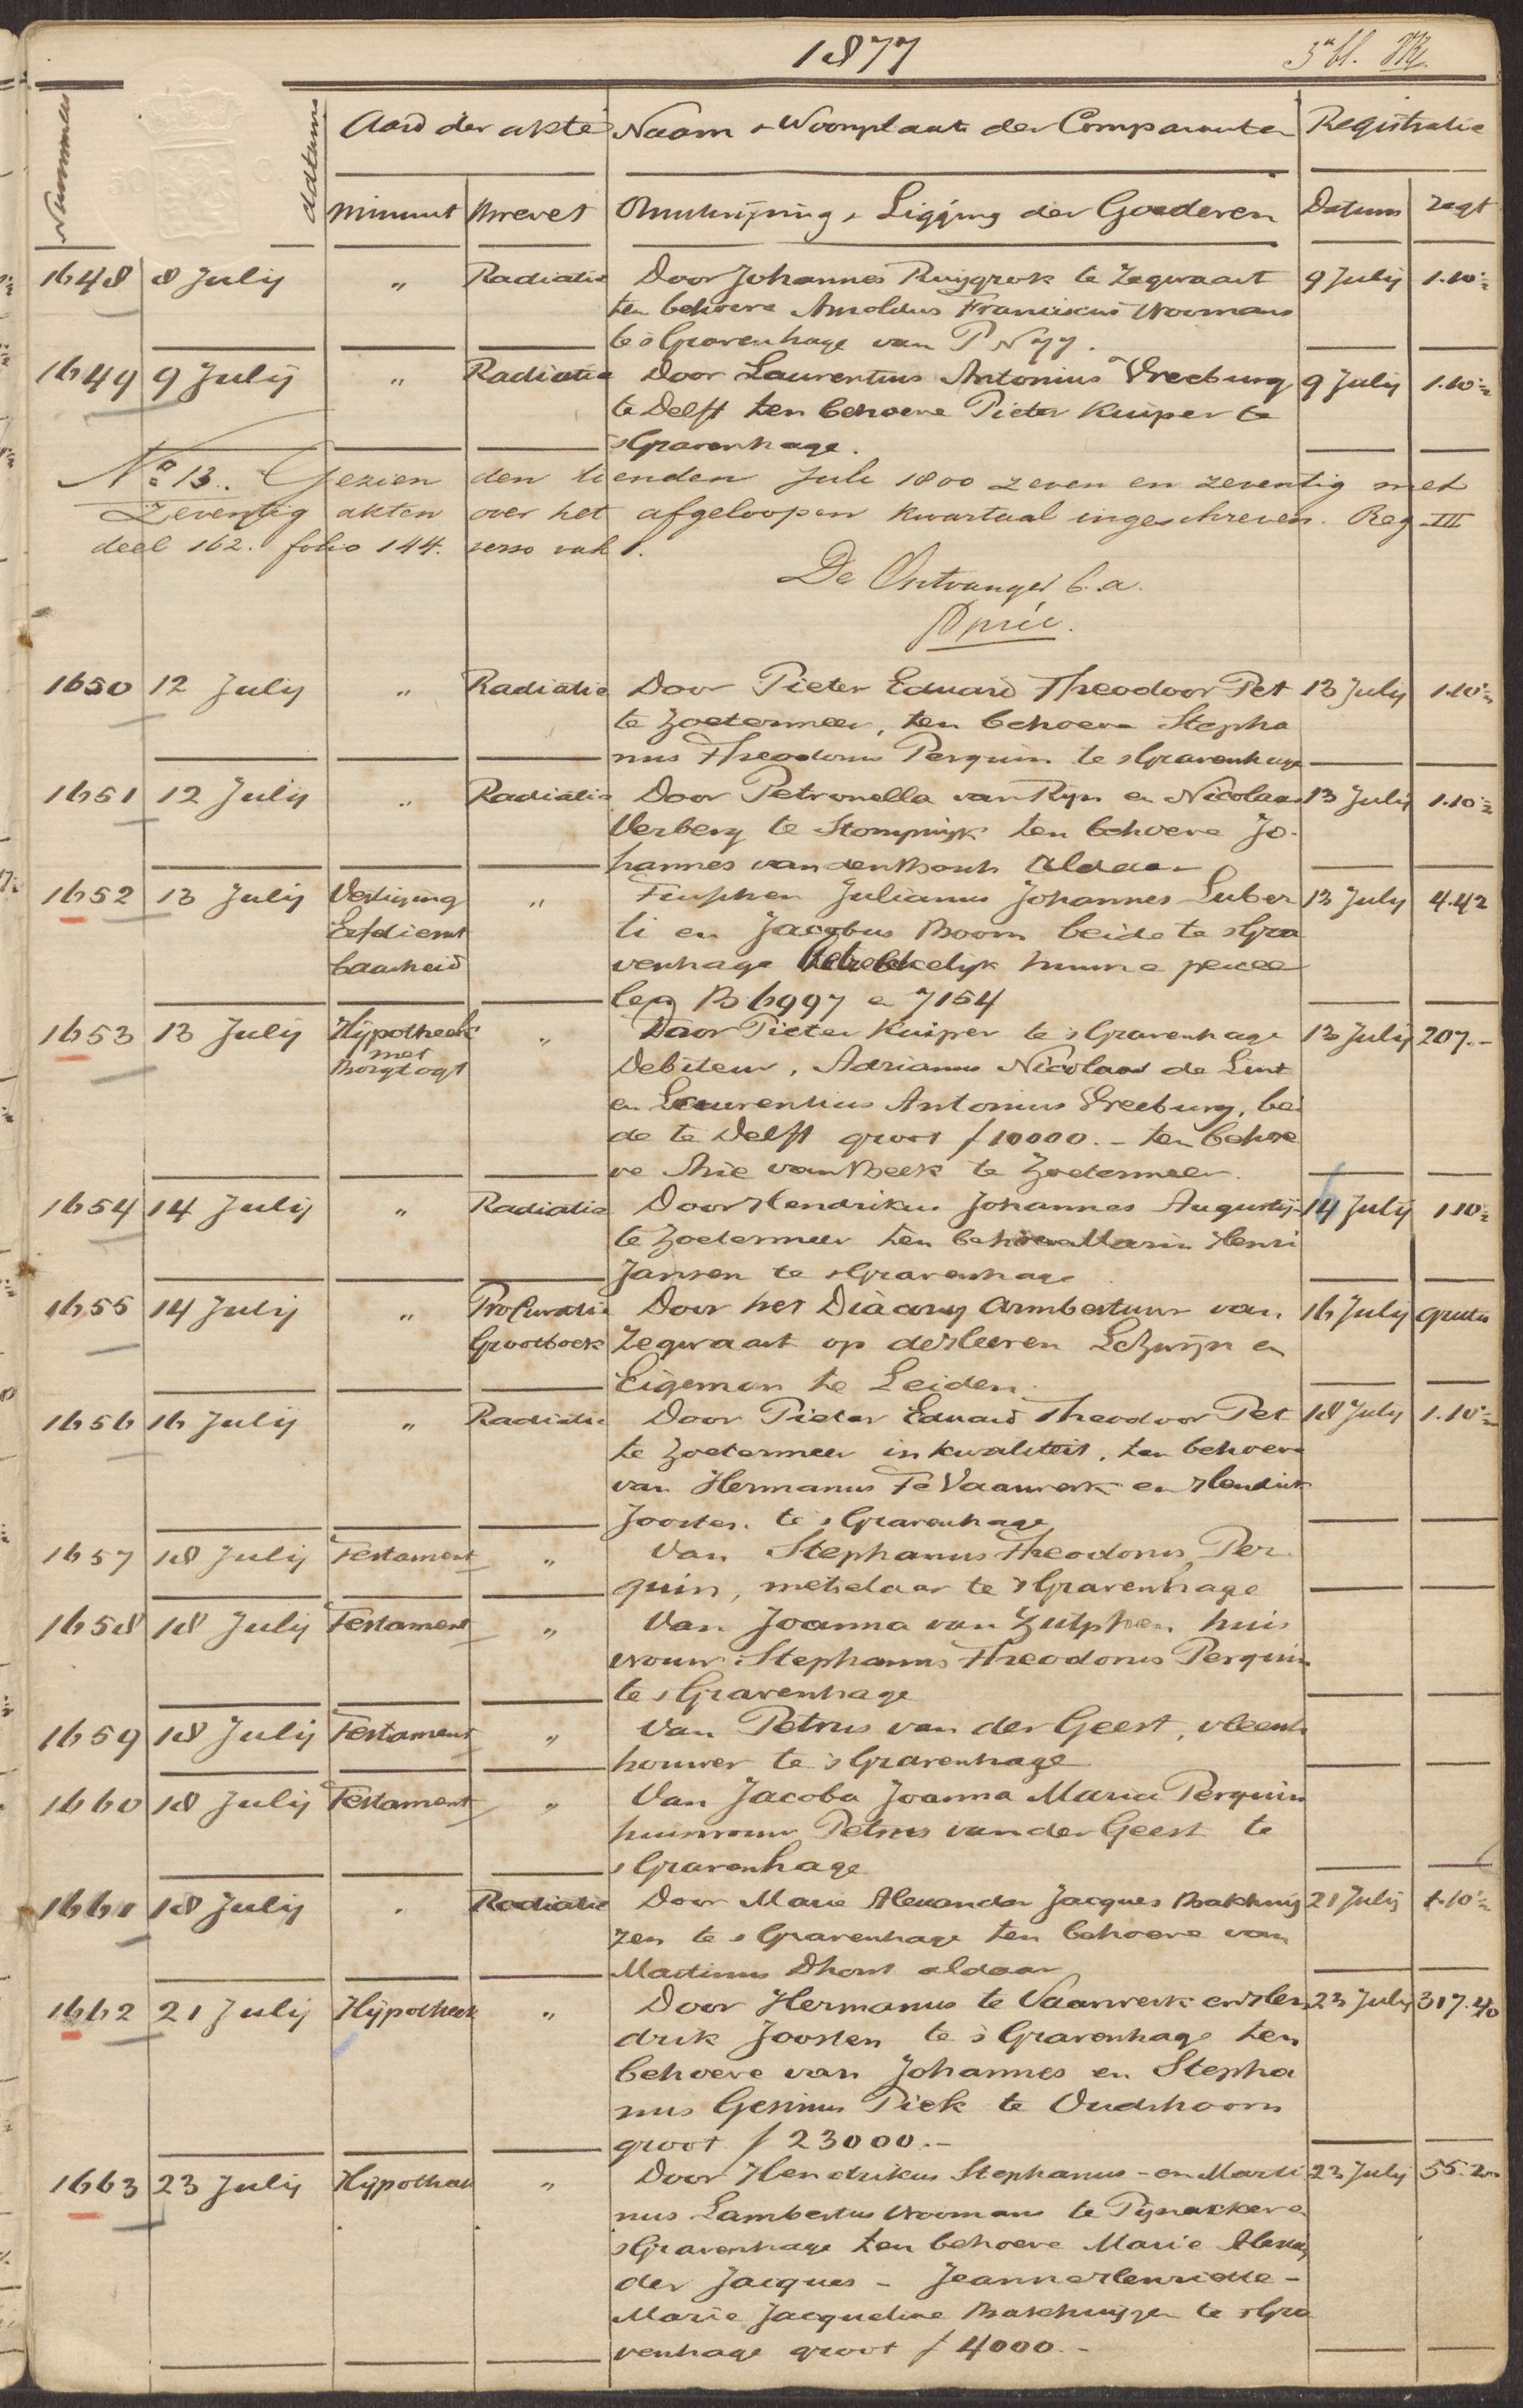 1877
3e bl.
Nummers
datums
Aard der akte Naam & Woonplaats der Comparanten Registratie
Minuut Brevet Omschrijving & Ligging der Goederen Datum regt
1648 8 July " Radiatie Door Johannes Ruijgrok te Zegwaart 9 July 1.10½
ten behoeve Arnoldus Franciscus Vroomans
te 's Gravenhage van P N 77.
1649 9 July " Radiatie Door Laurentius Antonius Vreeburg 9 July 1.10½
te Delft ten behoeve Pieter Kuiper te
s Gravenhage.
No 13. Gezien den tienden Juli 1800 zeven en zeventig met
zeventig akten over het afgeloopen kwartaal ingeschreven. Reg III
deel 162. folio 144. verso vak 1.
De Ontvanger b.a.
1650 12 July " Radiatie Door Pieter Eduard Theodoor Pet 13 July 1.10½
te Zoetermeer, ten behoeve Stepha
nus Theodorus Perquin te s Gravenhage
1651 12 July " Radiatie Door Petronella van Rijn en Nicolaas 13 July 1.10½
Verberg te Stompwijk ten behoeve Jo-
hannes van den Bosch aldaar
1652 13 July Vestiging " Julianus Johannes Luber 13 July 4.42
Erfdienst ti en Jacobus Boom beide te s Gra
baarheid venhage betrekkelijk hunne percee
len B 6997 en 7154
1653 13 July Hypotheek " Door Pieter Kuiper te s Gravenhage 13 July 207.-
met
Borgtogt Debiteur, Adrianus Nicolaas de Lint
en Laurentius Antonius Vreeburg, bei
de te Delft groot f 10000.- ten behoe
ve Arie van Beek te Zoetermeer.
1654 14 July " Radiatie Door Hendrikus Johannes Augustijn 14 July 1.10½
te Zoetermeer ten behoeve Marin Henri
Jansen te s Gravenhage
1655 14 July " Procuratie Door het Diacony Armbestuur van 16 July gratis
Grootboek Zegwaart op de Heeren L Zwijn en
Eigeman te Leiden.
1656 16 July " Radiatie Door Pieter Eduard Theodoor Pet 18 July 1.10½
te Zoetermeer in kwaliteit, ten behoeve
van Hermanus Te Vaarwerk en Hendrik
Joosten te s Gravenhage
1657 18 July Testament " Van Stephanus Theodorus Per
quin, metselaar te s Gravenhage
1658 18 July Testament " Van Joanna van Zutphen, huis
vrouw Stephanus Theodorus Perquin
te s Gravenhage
1659 18 July Testament " Van Petrus van der Geest, vleesch
houwer te s Gravenhage
1660 18 July Testament " Van Jacoba Joanna Maria Perquin
huisvrouw Petrus van der Geest te
s Gravenhage
1661 18 July " Radiatie Door Marie Alexander Jacques Bakhuij 21 July 1.10½
zen te s Gravenhage ten behoeve van
Martinus Dhont aldaar
1662 21 July Hypotheek " Door Hermanus te Vaarwerk en Hen 23 July 317.40
drik Joosten te s Gravenhage ten
behoeve van Johannes en Stepha
nus Gesinus Piek te Oudshoorn
groot f 23000.-
1663 23 July Hypotheek " Door Hendrikus Stephanus - en Marti 23 July 55.20
nus Lambertus Vroomans te Pijnacker en
s Gravenhage ten behoeve Marie Alexan
der Jacques - Jeanne Henriette -
Marie Jacqueline Bakhuijzen te s Gra
venhage groot f 4000.-